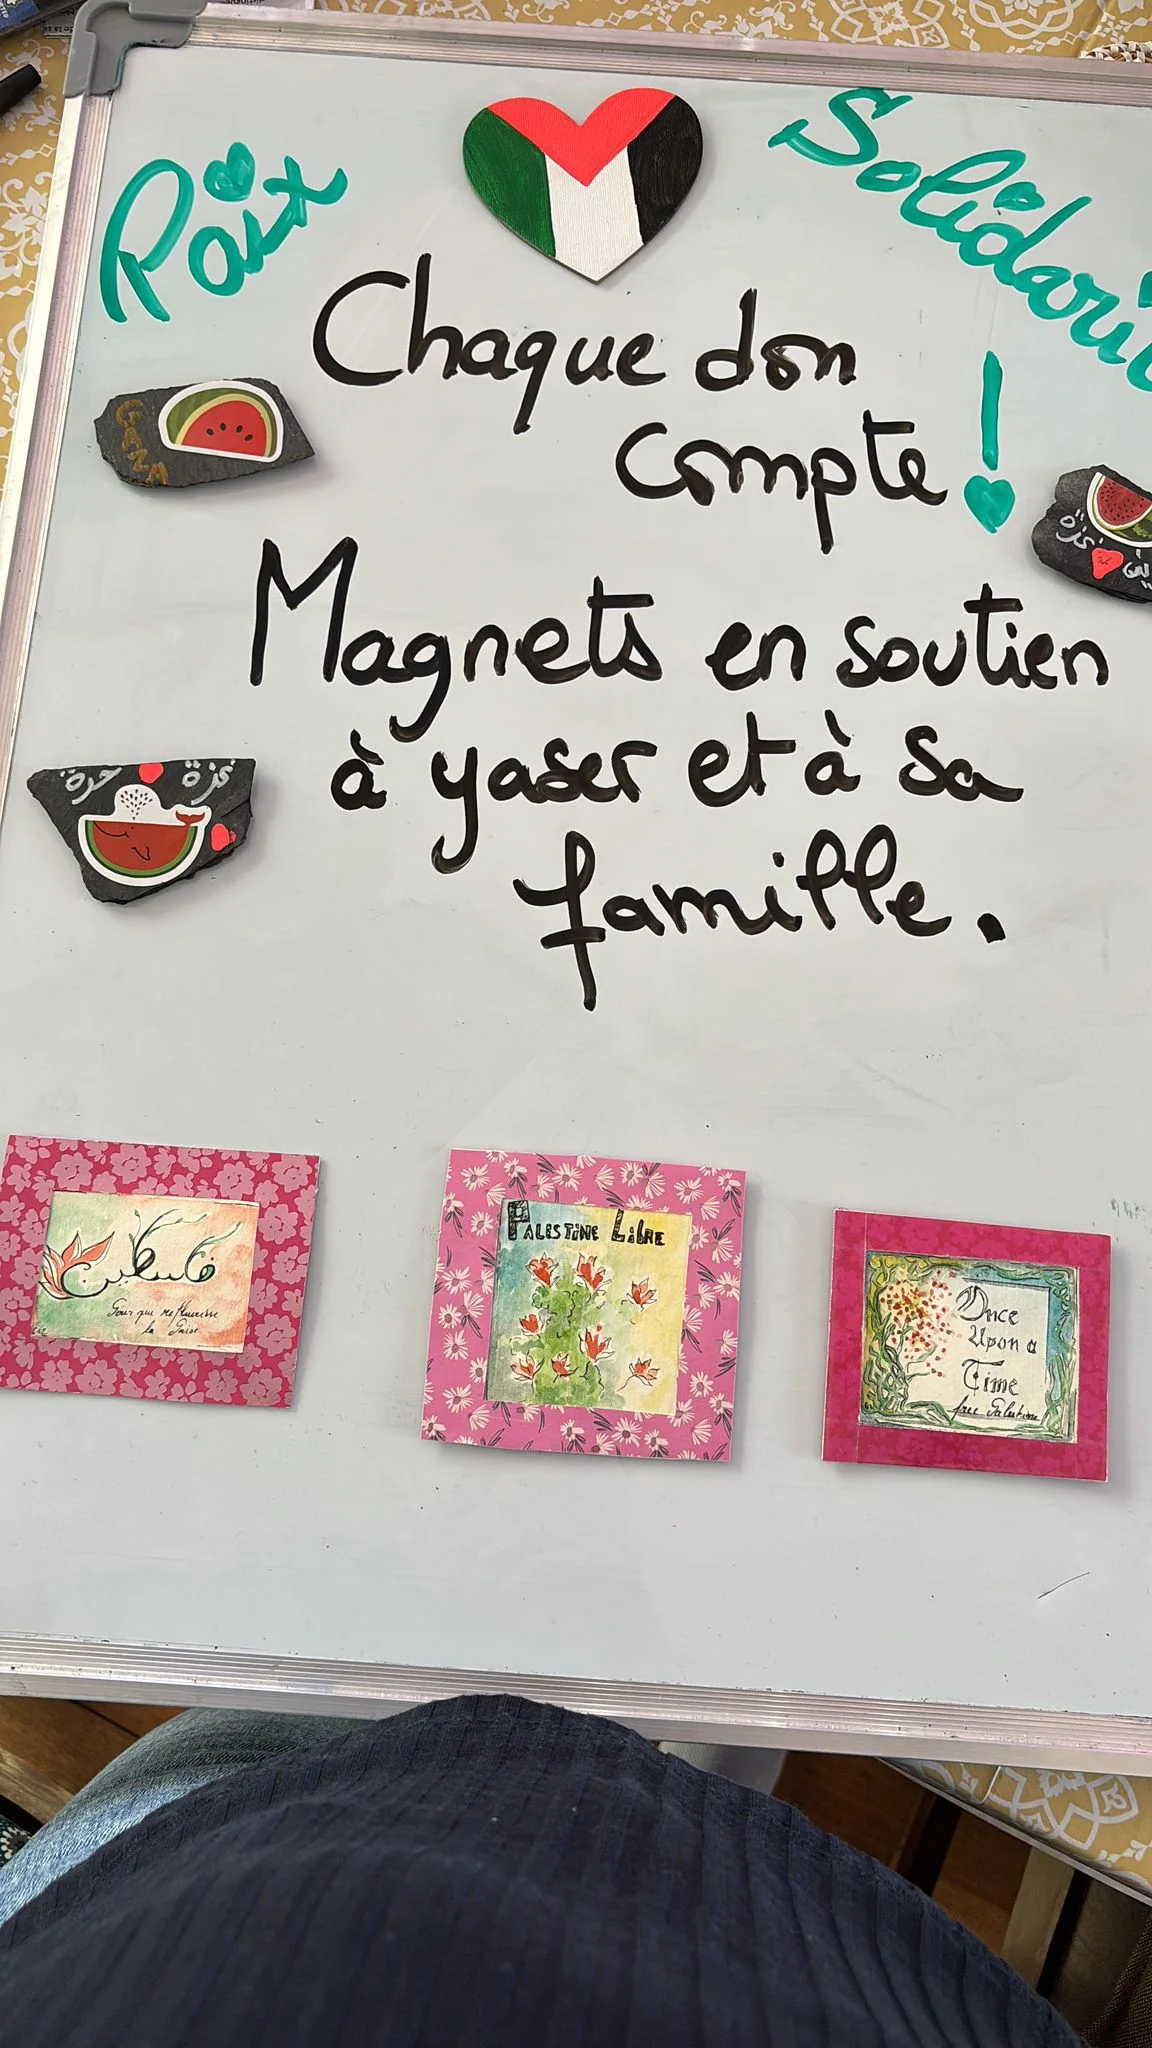 Paix
Chaque don
compte !
GAZA
غزة
Magnets en soutien
à yaser et à sa
famille.
غزة حرة
فلسطين
Pour que refleurisse
la Paix
PALESTINE LIBRE
Once
Upon a
Time
free Palestine